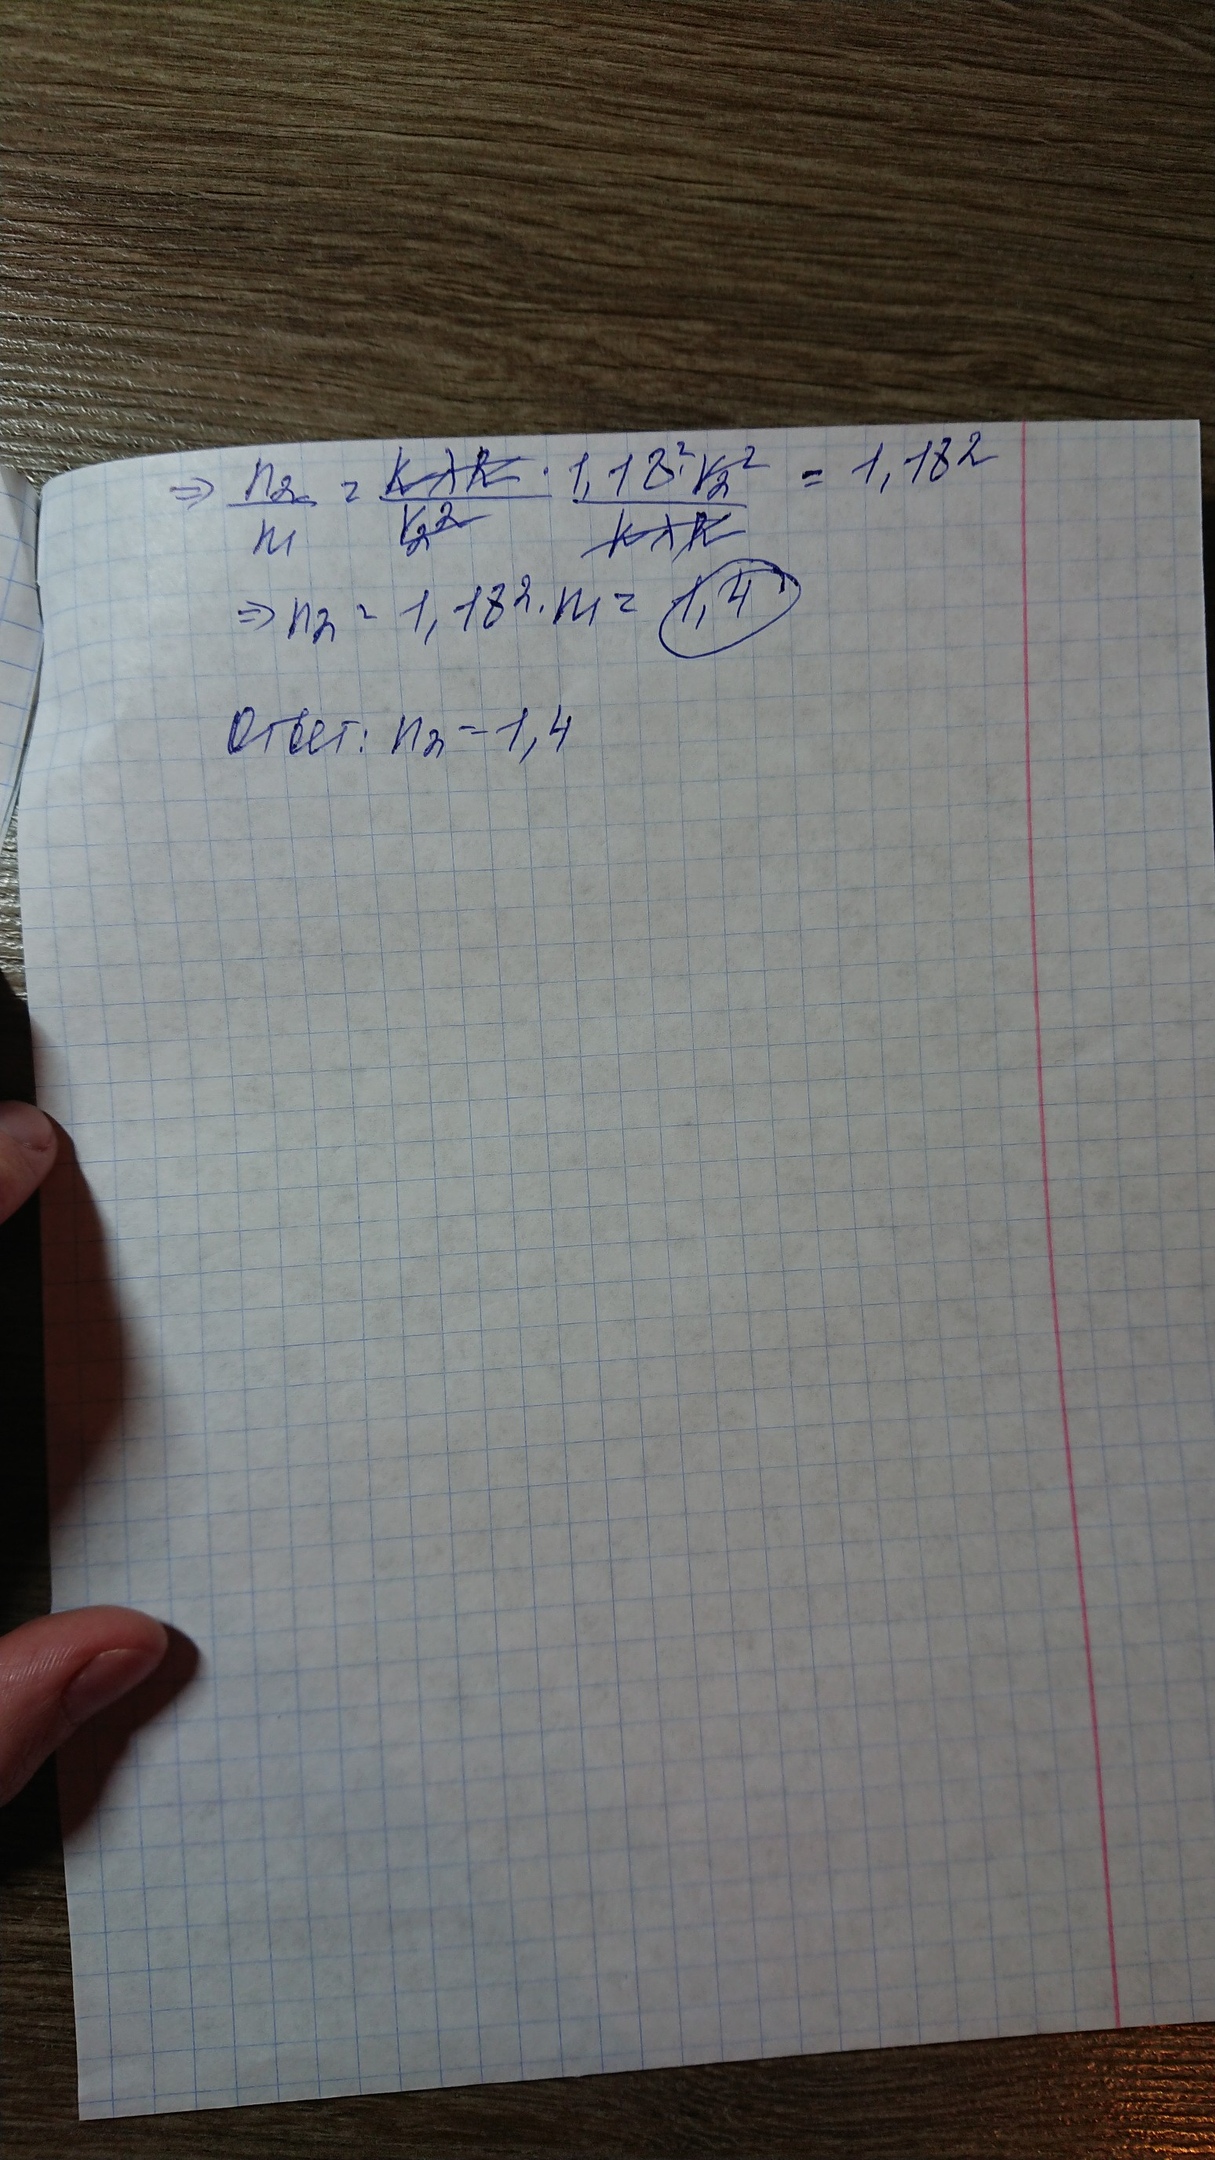 ⇒ n₂/n₁ = kλR/r₂² · 1,18²·r₂²/kλR = 1,18²
⇒ n₂ = 1,18² · n₁ = 1,4
Ответ: n₂ = 1,4